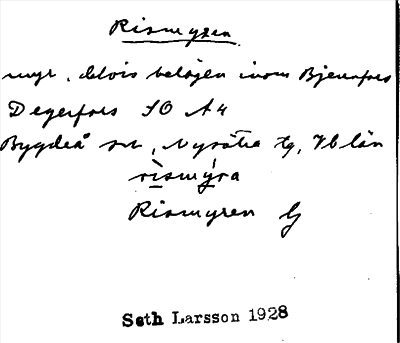 Rismyren
myr, delvis belägen inom Bjennfors
Degerfors SO A4
Bygdeå sn, Nysätra tg, Vb län
rismýra
Rismyren G
Seth Larsson 1928